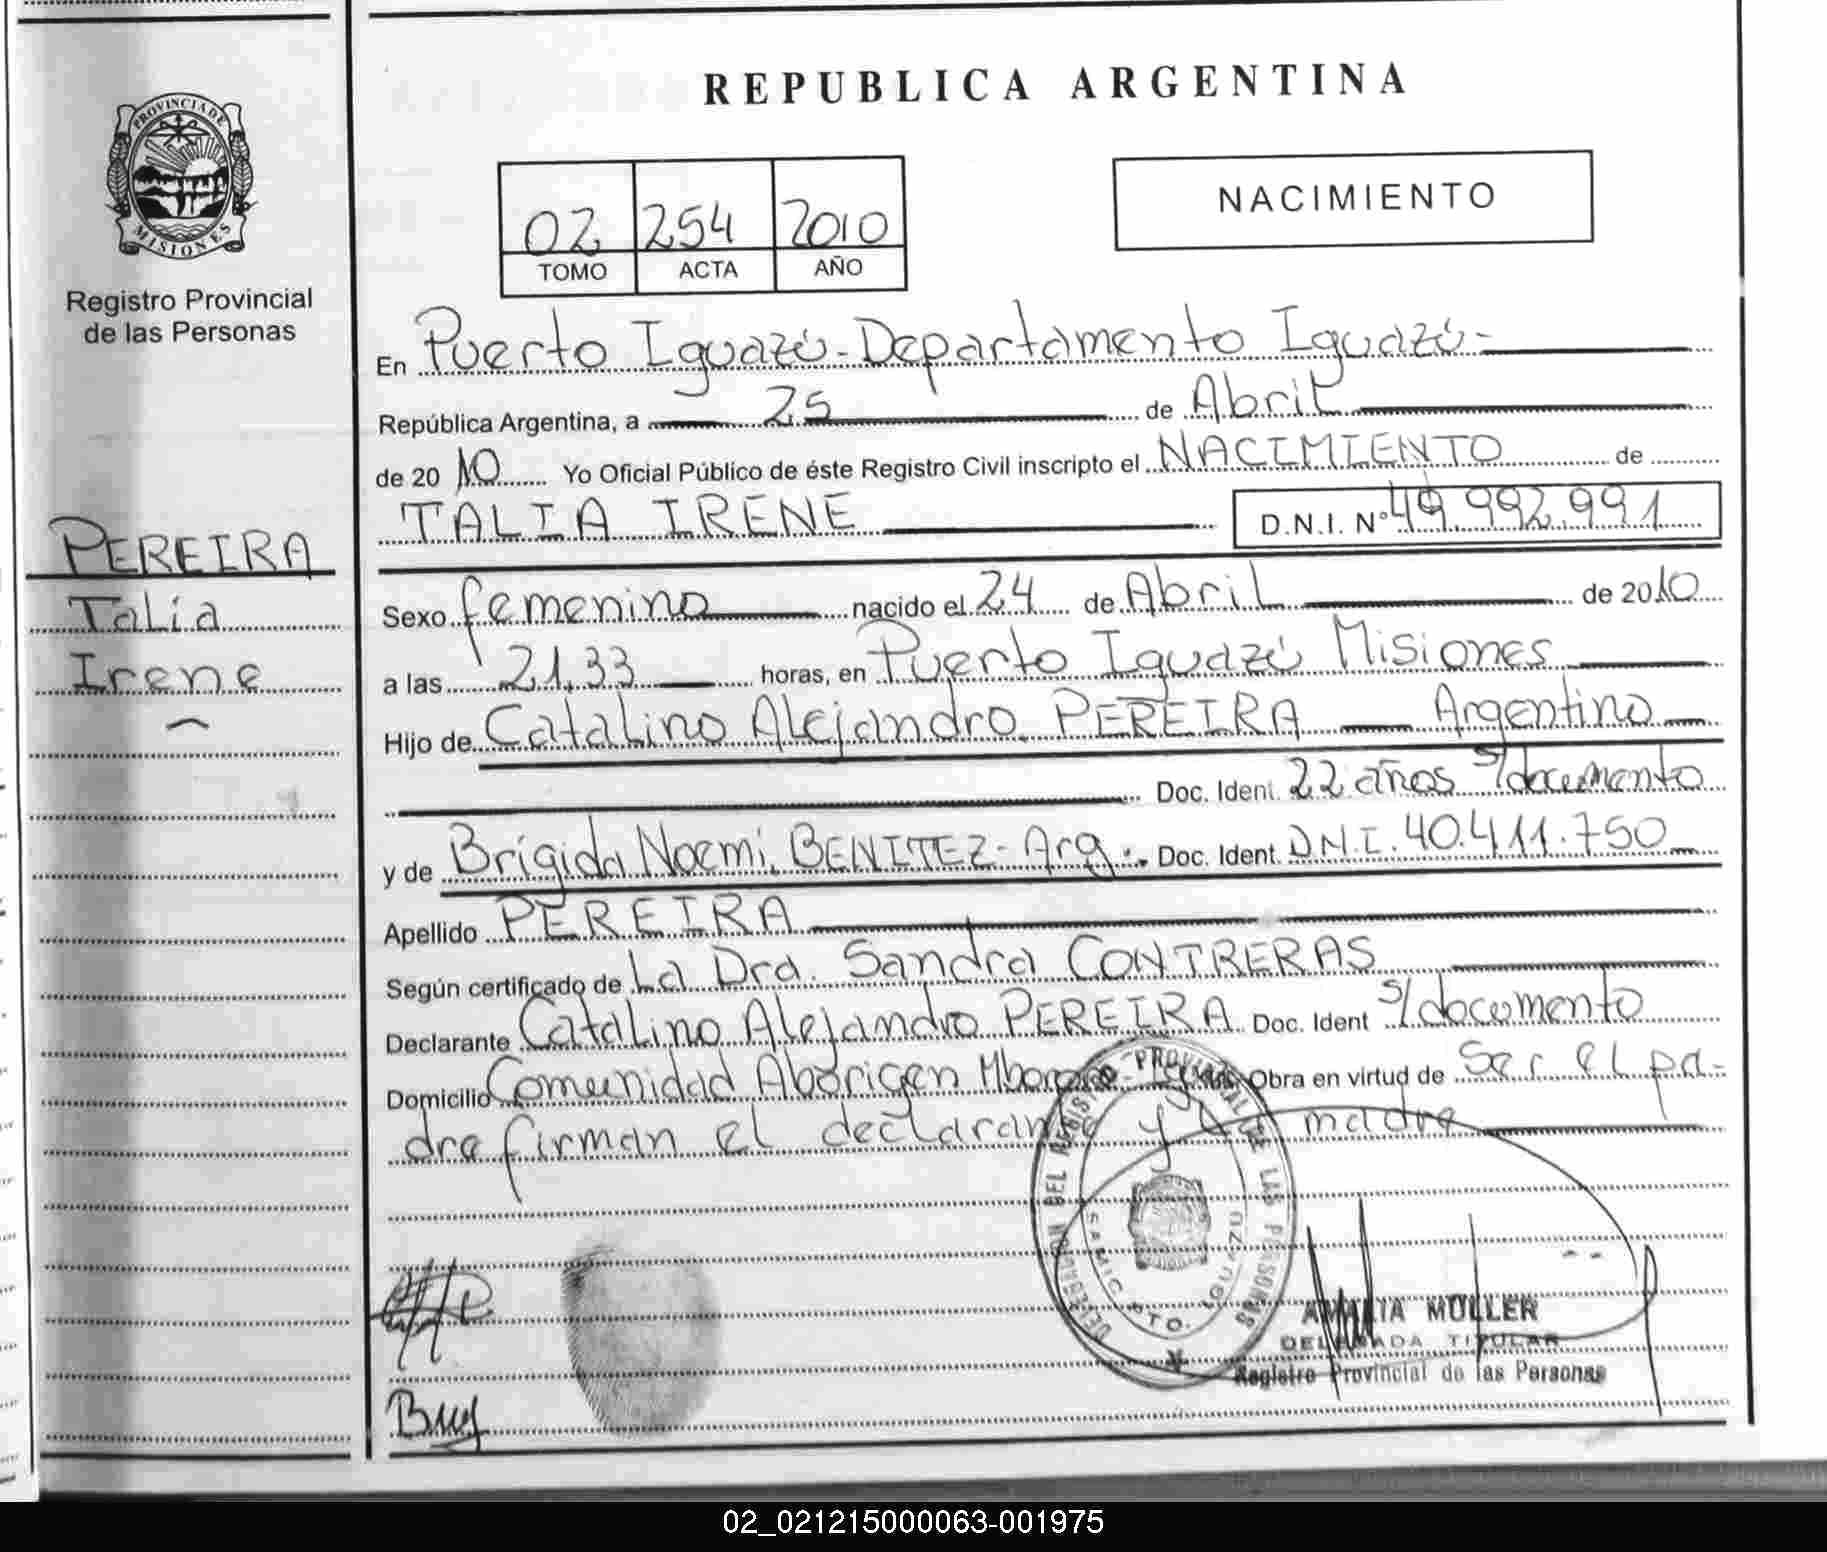 REPUBLICA ARGENTINA
PROVINCIA DE
MISIONES
Registro Provincial
de las Personas
02 254 2010
TOMO ACTA AÑO
NACIMIENTO
En Puerto Iguazú - Departamento Iguazú -
República Argentina, a 25 de Abril
de 2010 Yo Oficial Público de éste Registro Civil inscripto el NACIMIENTO de
TALIA IRENE D.N.I. Nº 49.992.991
PEREIRA
Talia
Irene
Sexo femenino nacido el 24 de Abril de 2010
a las 21,33 horas, en Puerto Iguazú Misiones
Hijo de Catalino Alejandro PEREIRA Argentino
Doc. Ident. 22 años s/documento
y de Brigida Noemi BENITEZ - Arg. Doc. Ident. D.N.I. 40.411.750
Apellido PEREIRA
Según certificado de La Dra. Sandra CONTRERAS
Declarante Catalino Alejandro PEREIRA Doc. Ident s/documento
Domicilio Comunidad Aborigen Obra en virtud de Ser el pa-
dre firman el declarante y madre
DELEGACION DEL REGISTRO PROVINCIAL DE LAS PERSONAS
SAMIC PTO. IGUAZU
AMALIA MULLER
DELEGADA TITULAR
Registro Provincial de las Personas
02_021215000063-001975